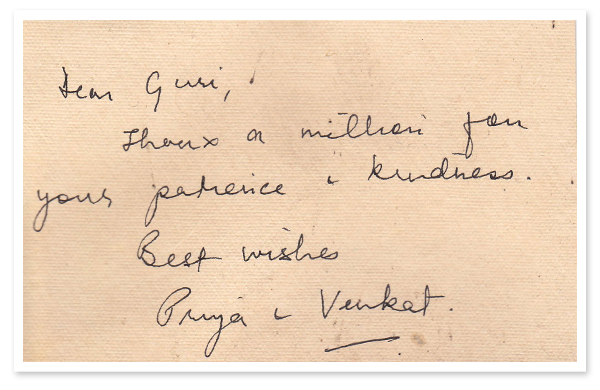 Dear Guri,
Thanx a million for
your patience & kindness.
Best wishes
Priya & Venkat.